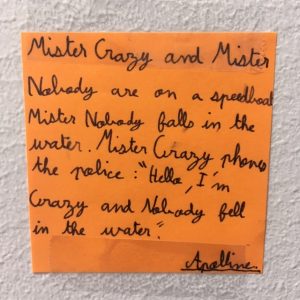 Mister Crazy and Mister
Nobody are on a speedboat
Mister Nobody falls in the
water. Mister Crazy phones
the police : "Hello, I'm
Crazy and Nobody fell
in the water."
Apolline.